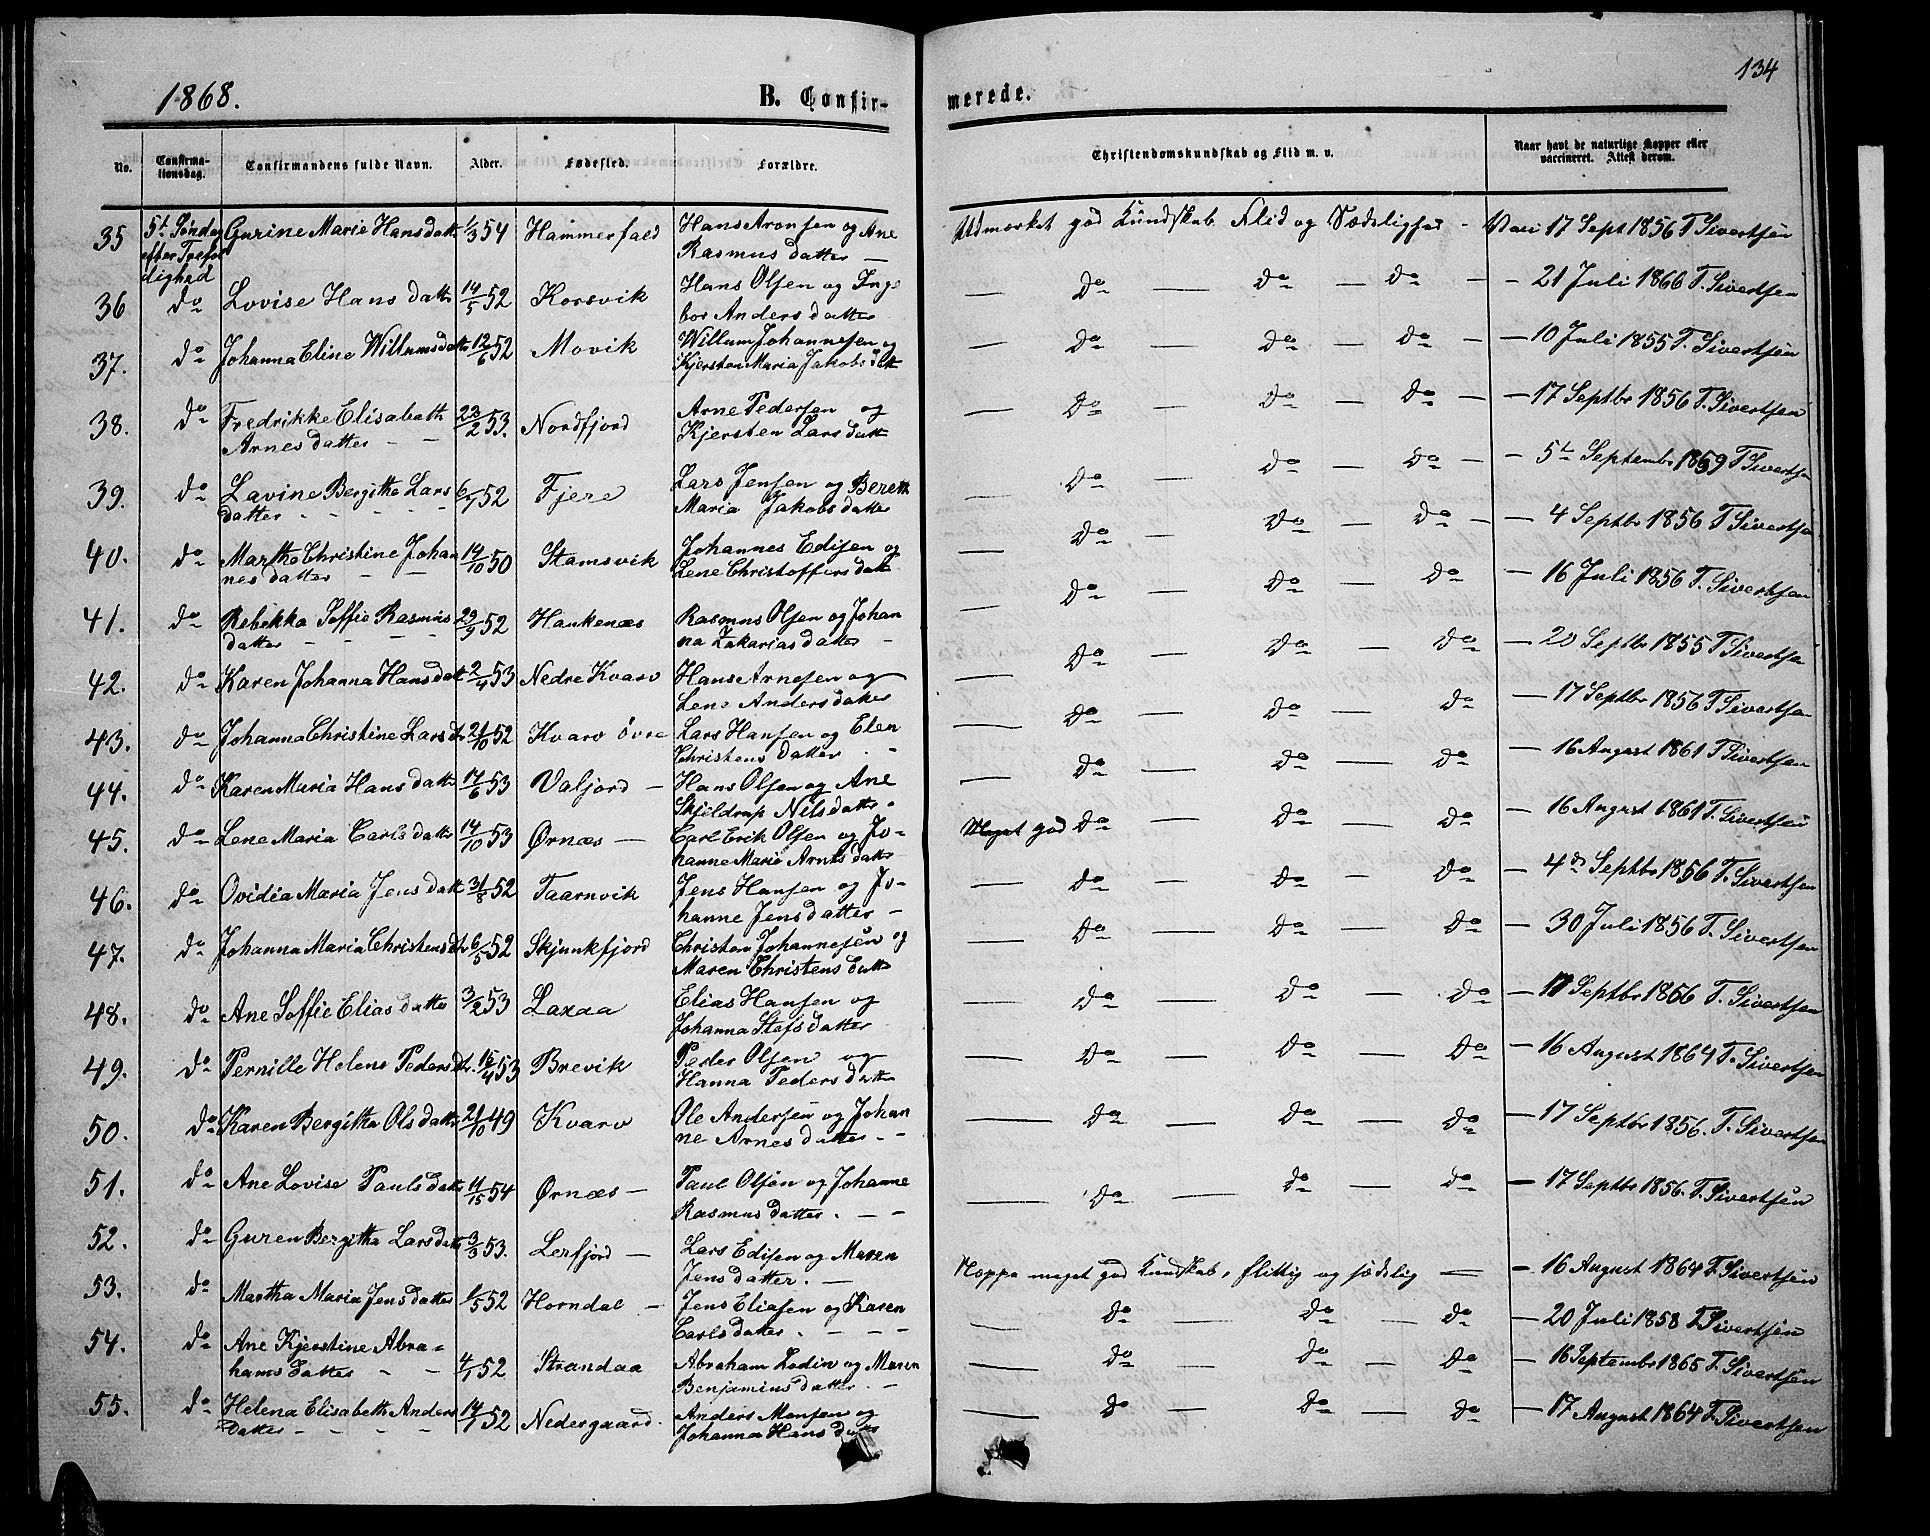 134
1868.
B. Confir-
merede.
No.
Confirma-
tionsdag.
Confirmandens fulde Navn.
Alder.
Fødested.
Forældre.
Christendomskundskab og Flid m. v.
Naar havt de naturlige Kopper eller
vaccineret. Attest derom.
35 5t Søndag Gurine Marie Hansdatt 1/3 54 Hammerfald Hans Aronsen og Ane Udmærket god Kundskab Flid og Sædelighed - Vaci 17 Sept 1856 T Sivertsen
efter Trefol Rasmus datter —
dighed
36 do Lovise Hans datte 14/5 52 Korsvik Hans Olsen og Inge — do — do — do — - 21 Juli 1866 T. Sivertsen
bor Anders datter
37. do Johanna Eline Willumsdatte 12/6 52 Movik Willum Johannesen og — do — do — do — - 10 Juli 1855 T. Sivertsen
Kjersten Maria Jakobs datt
38. do Fredrikke Elisabeth 23/2 53. Nordfjord Arne Pedersen og — do — do — do — - 17 Septbr 1856 T. Sivertsen
Arnes datter - - Kjersten Lars datt
39. do Lavine Bergitha Lars 6/7 52 Fjere Lars Jensen og Bereth — do — do — do — - 5te Septembr 1859 T Sivertsen
datter - - - - Maria Jakobs datter
40. do Martha Christine Johan 14/10 50 Stamsvik Johannes Edisen og — do — do — do — - 4 Septbr 1856 T Sivertsen
nes datter - - Lene Christoffers datt
41. do Rebekka Soffie Rasmus 29/9 52 Haukenæs Rasmus Olsen og Johan — do — do do — 16 Juli 1856 T. Sivertsen
datter - - - - na Zakarias datter -
42. do Karen Johanna Hans datt 2/4 53 Nedre Kvarv Hans Arnesen og — do — do — do — 20 Septbr 1855 T Sivertsen
Lene Anders datter
43. do Johanna Christine Lars dtr 21/10 52 Kvarv övre Lars Hansen og Elen — do — do — do — 17 Septbr 1856 T Sivertsen
Christens datter - -
44. do Karen Maria Hans datte 14/6 53 Valjord — Hans Olsen og Ane — do — do — do — 16 August 1861 T Sivertsen
Skjeldrup Nils datte -
45. do Lene Maria Carls datte 14/10 53 Ørnæs — Carl Erik Olsen og Jo- Meget god do — do — do — 16 August 1861 T. Sivertsen
hanne Marie Arnts datte
46. do Ovidia Maria Jens datt 31/8 52 Taarnvik Jens Hansen og Jo- — do — do — do — 4de Septbr 1856 T. Sivertsen
hanne Jens datter -
47. do Johanna Maria Christens dtr 6/5 52 Skjunkfjord Christen Johannesen og — do — do — do — 30 Juli 1856 T. Sivertsen
Maren Christens datte
48. do Ane Soffie Elias datte 3/2 53 Laxaa Elias Hansen og — do — do — do — 17 Septbr 1856 T. Sivertsen
Johanna Stefs datter
49. do Pernille Helene Peders dtr. 15/4 53 Brevik Peder Olsen og — do — do — do — 16 August 1864 T. Sivertsen
Hanna Peders datte
50. do Karen Bergitha Ols datte 21/10 49 Kvarv Ole Andersen og Johan — do — do — do — 17 Septbr 1856. T. Sivertsen
ne Arnes datter - -
51. do Ane Lovise Pauls datte 11/15 54 Ørnæs — Paul Olsen og Johanne — do — do — do — 17 Septbr 1856. T. Sivertsen
Rasmus datter. - -
52. do Guren Bergitha Lars datt 3/3 53. Lerfjord — Lars Edisen og Maren Noppe meget god Kundskab, flittig og sædelig — — 16 August 1864 T. Sivertsen
Jens datter. —
53. do Martha Maria Jens datter 6/5 52 Horndal — Jens Eliasen og Karen — do — do — do — 20 Juli 1858 T. Sivertsen
Carls datter. - - -
54. do Ane Kjerstine Abra- 4/1 52 Strandaa Abraham Lodin og Maren — do — do — do — 16 Septembr 1865 T. Sivertsen
hams datter - - Benjamins datter. -
55. do Helena Elisabeth Anders 14/1 52 Nedergaard. Anders Monsen og — do — do — do — 17 August 1864 T. Sivertsen
datter - - - - Johanna Hans datter